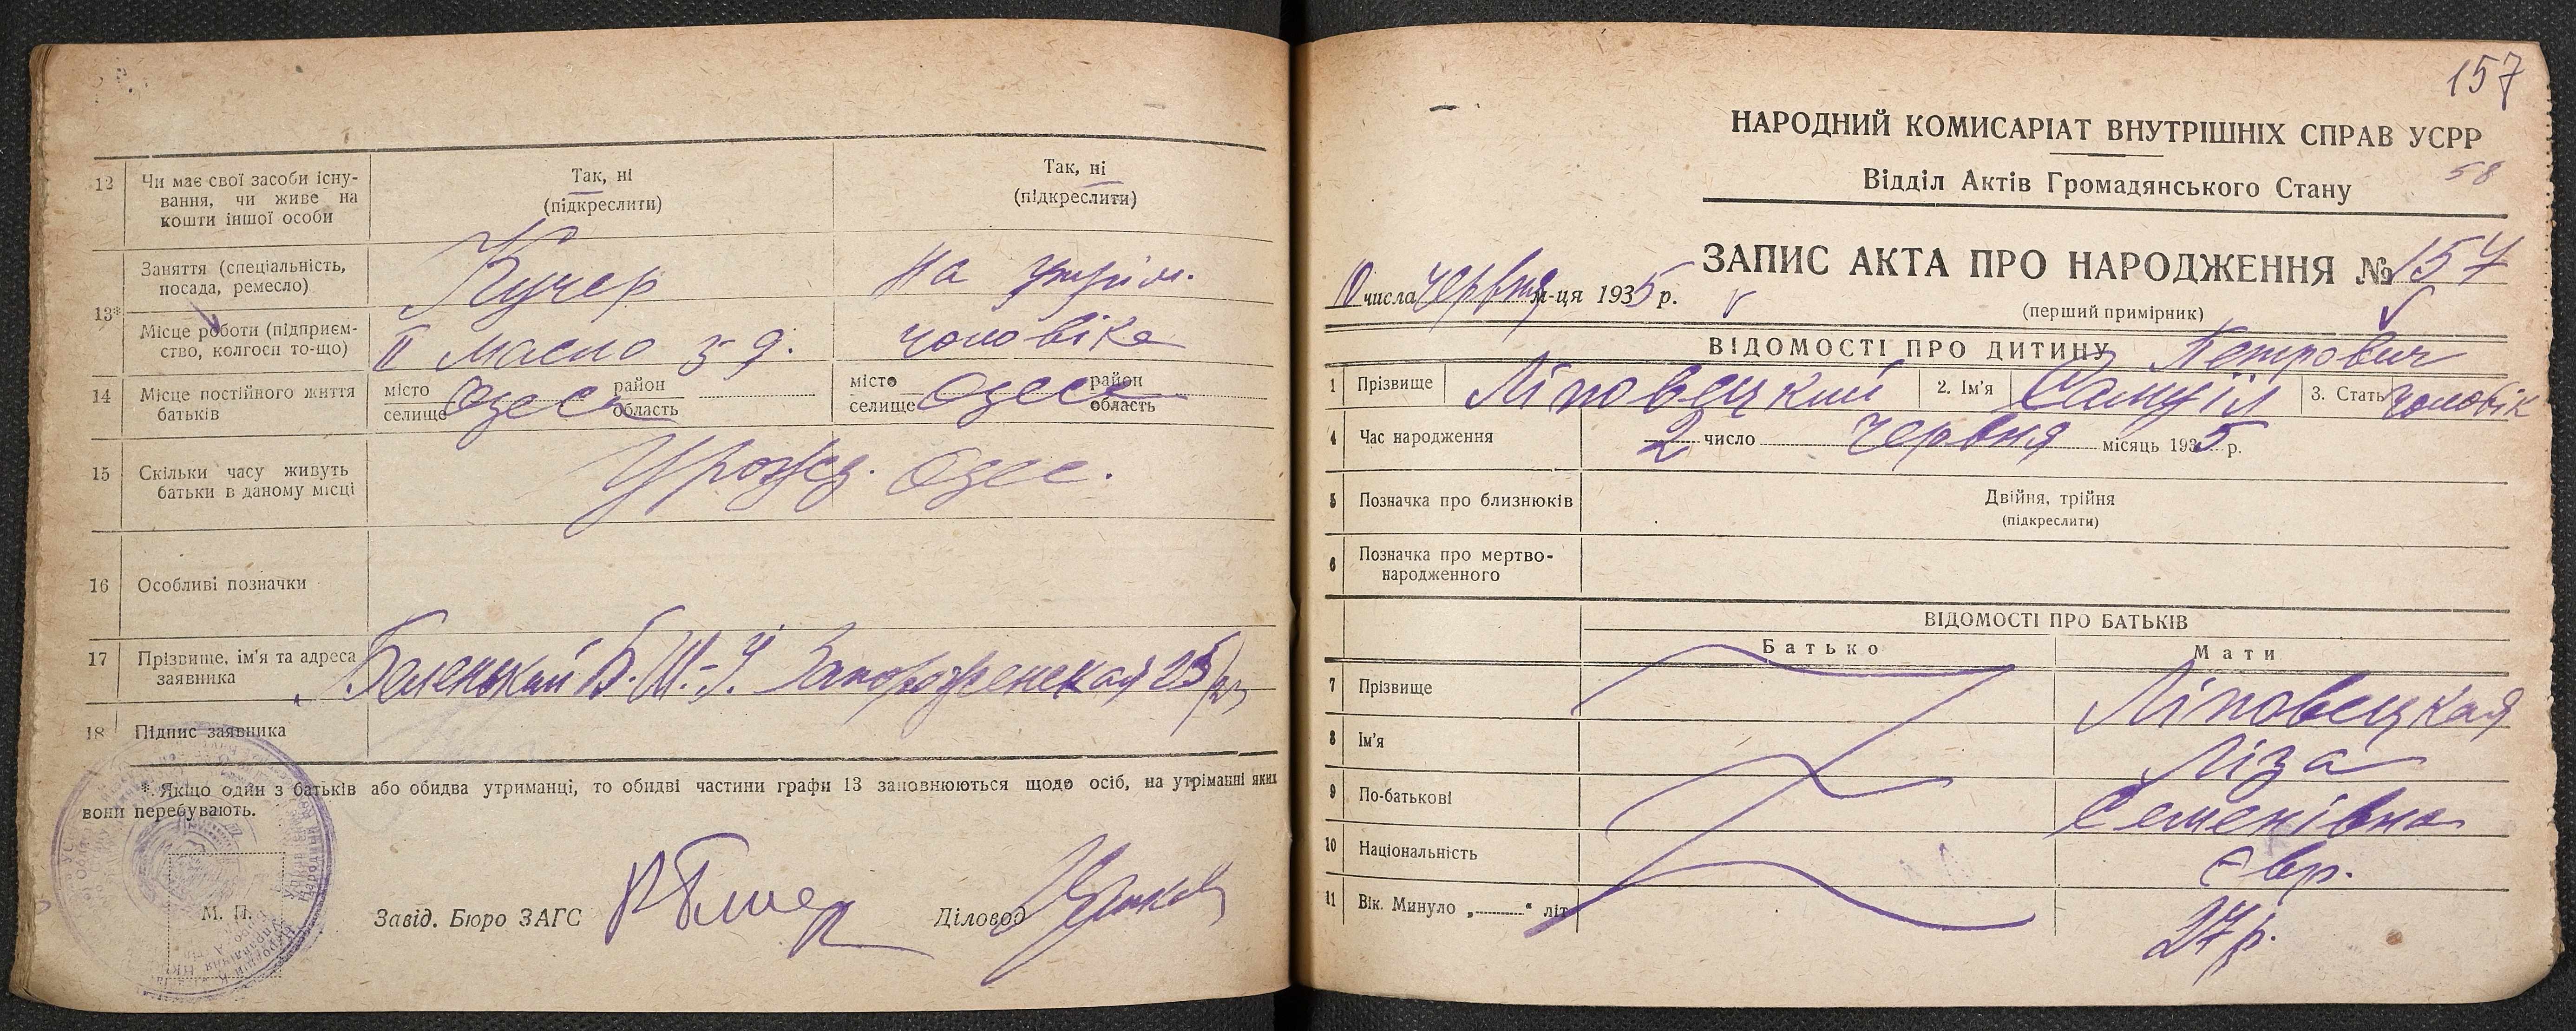 12 Чи має свої засоби існу-
вання, чи живе на
кошти іншої особи
Так, ні
(підкреслити)
Так, ні
(підкреслити)
13* Заняття (спеціальність,
посада, ремесло)
Кучер
на утрім.
Місце роботи (підприєм-
ство, колгосп то-що)
II масло з д.
чоловіка
14 Місце постійного життя
батьків
місто
селище Одеса район
область
місто
селище Одеса район
область
15 Скільки часу живуть
батьки в даному місці
Урожд. Одес.
16 Особливі позначки
17 Прізвище, ім'я та адреса
заявника
Беленький Б. Ш.-У. Запороженская 25
18 Підпис заявника
* Якщо один з батьків або обидва утриманці, то обидві частини графи 13 заповнюються щодо осіб, на утриманні яких
вони перебувають.
М. П.
Завід. Бюро ЗАГС
Діловод
157
НАРОДНИЙ КОМИСАРІАТ ВНУТРІШНІХ СПРАВ УСРР
58
Відділ Актів Громадянського Стану
ЗАПИС АКТА ПРО НАРОДЖЕННЯ № 157
10 числа червня м-ця 1935 р.
(перший примірник)
ВІДОМОСТІ ПРО ДИТИНУ Петрович
1 Прізвище Ліповецкий 2. Ім'я Самуіл 3. Стать чоловік
4 Час народження 2 число червня місяць 1935 р.
5 Позначка про близнюків Двійня, трійня
(підкреслити)
6 Позначка про мертво-
народженного
ВІДОМОСТІ ПРО БАТЬКІВ
Батько Мати
7 Прізвище Ліповецкая
8 Ім'я Ліза
9 По-батькові Семенівна
10 Національність Євр.
11 Вік. Минуло „ “ літ 27 р.